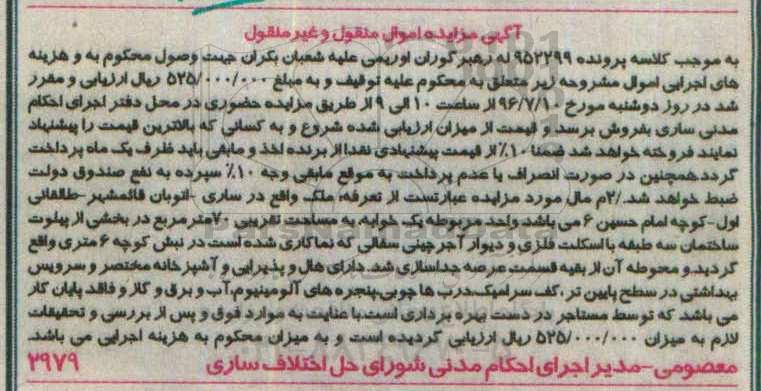 آگهی مزایده اموال منقول و غیر منقول
به موجب کلاسه پرونده ۹۵۲۲۹۹ له رهبر گوران اوریمی علیه شعبان بکران جهت وصول محکوم به و هزینه
های اجرایی اموال مشروحه زیر متعلق به محکوم علیه توقیف و به مبلغ ۵۲۵/۰۰۰/۰۰۰ ریال ارزیابی و مقرر
شد در روز دوشنبه مورخ ۹۶/۷/۱۰ از ساعت ۱۰ الی ۹ از طریق مزایده حضوری در محل دفتر اجرای احکام
مدنی ساری بفروش برسد و قیمت از میزان ارزیابی شده شروع و به کسانی که بالاترین قیمت را پیشنهاد
نمایند فروخته خواهد شد ضمنا ۱۰٪ از قیمت پیشنهادی نقدا از برنده اخذ و مابقی باید ظرف یک ماه پرداخت
گردد همچنین در صورت انصراف یا عدم پرداخت به موقع مابقی وجه ۱۰٪ سپرده به نفع صندوق دولت
ضبط خواهد شد./۲م مال مورد مزایده عبارتست از تعرفه، ملک واقع در ساری -اتوبان قائمشهر-طالقانی
اول-کوچه امام حسین ۶ می باشد واحد مربوطه یک خوابه، به مساحت تقریبی ۷۰متر مربع در بخشی از پیلوت
ساختمان سه طبقه با اسکلت فلزی و دیوار آجر چینی سفالی که نما کاری شده است در نبش کوچه ۶ متری واقع
گردید.و محوطه آن از بقیه قسمت عرصه جداسازی شد. دارای هال و پذیرایی و آشپزخانه مختصر و سرویس
بهداشتی در سطح پایین تر، کف سرامیک،درب ها چوبی،پنجره های آلومینیوم،آب و برق و گاز و فاقد پایان کار
می باشد که توسط مستاجر در دست بهره برداری است.با عنایت به موارد فوق و پس از بررسی و تحقیقات
لازم به میزان ۵۲۵/۰۰۰/۰۰۰ ریال ارزیابی گردیده است و به میزان محکوم به هزینه اجرایی می باشد.
معصومی-مدیر اجرای احکام مدنی شورای حل اختلاف ساری ۲۹۷۹
ParsNamadData